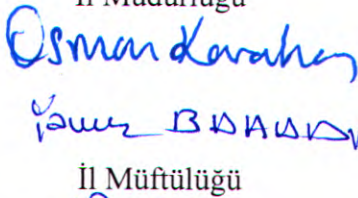 İl Müdürlüğü
Osman Karahan
İl Müftülüğü